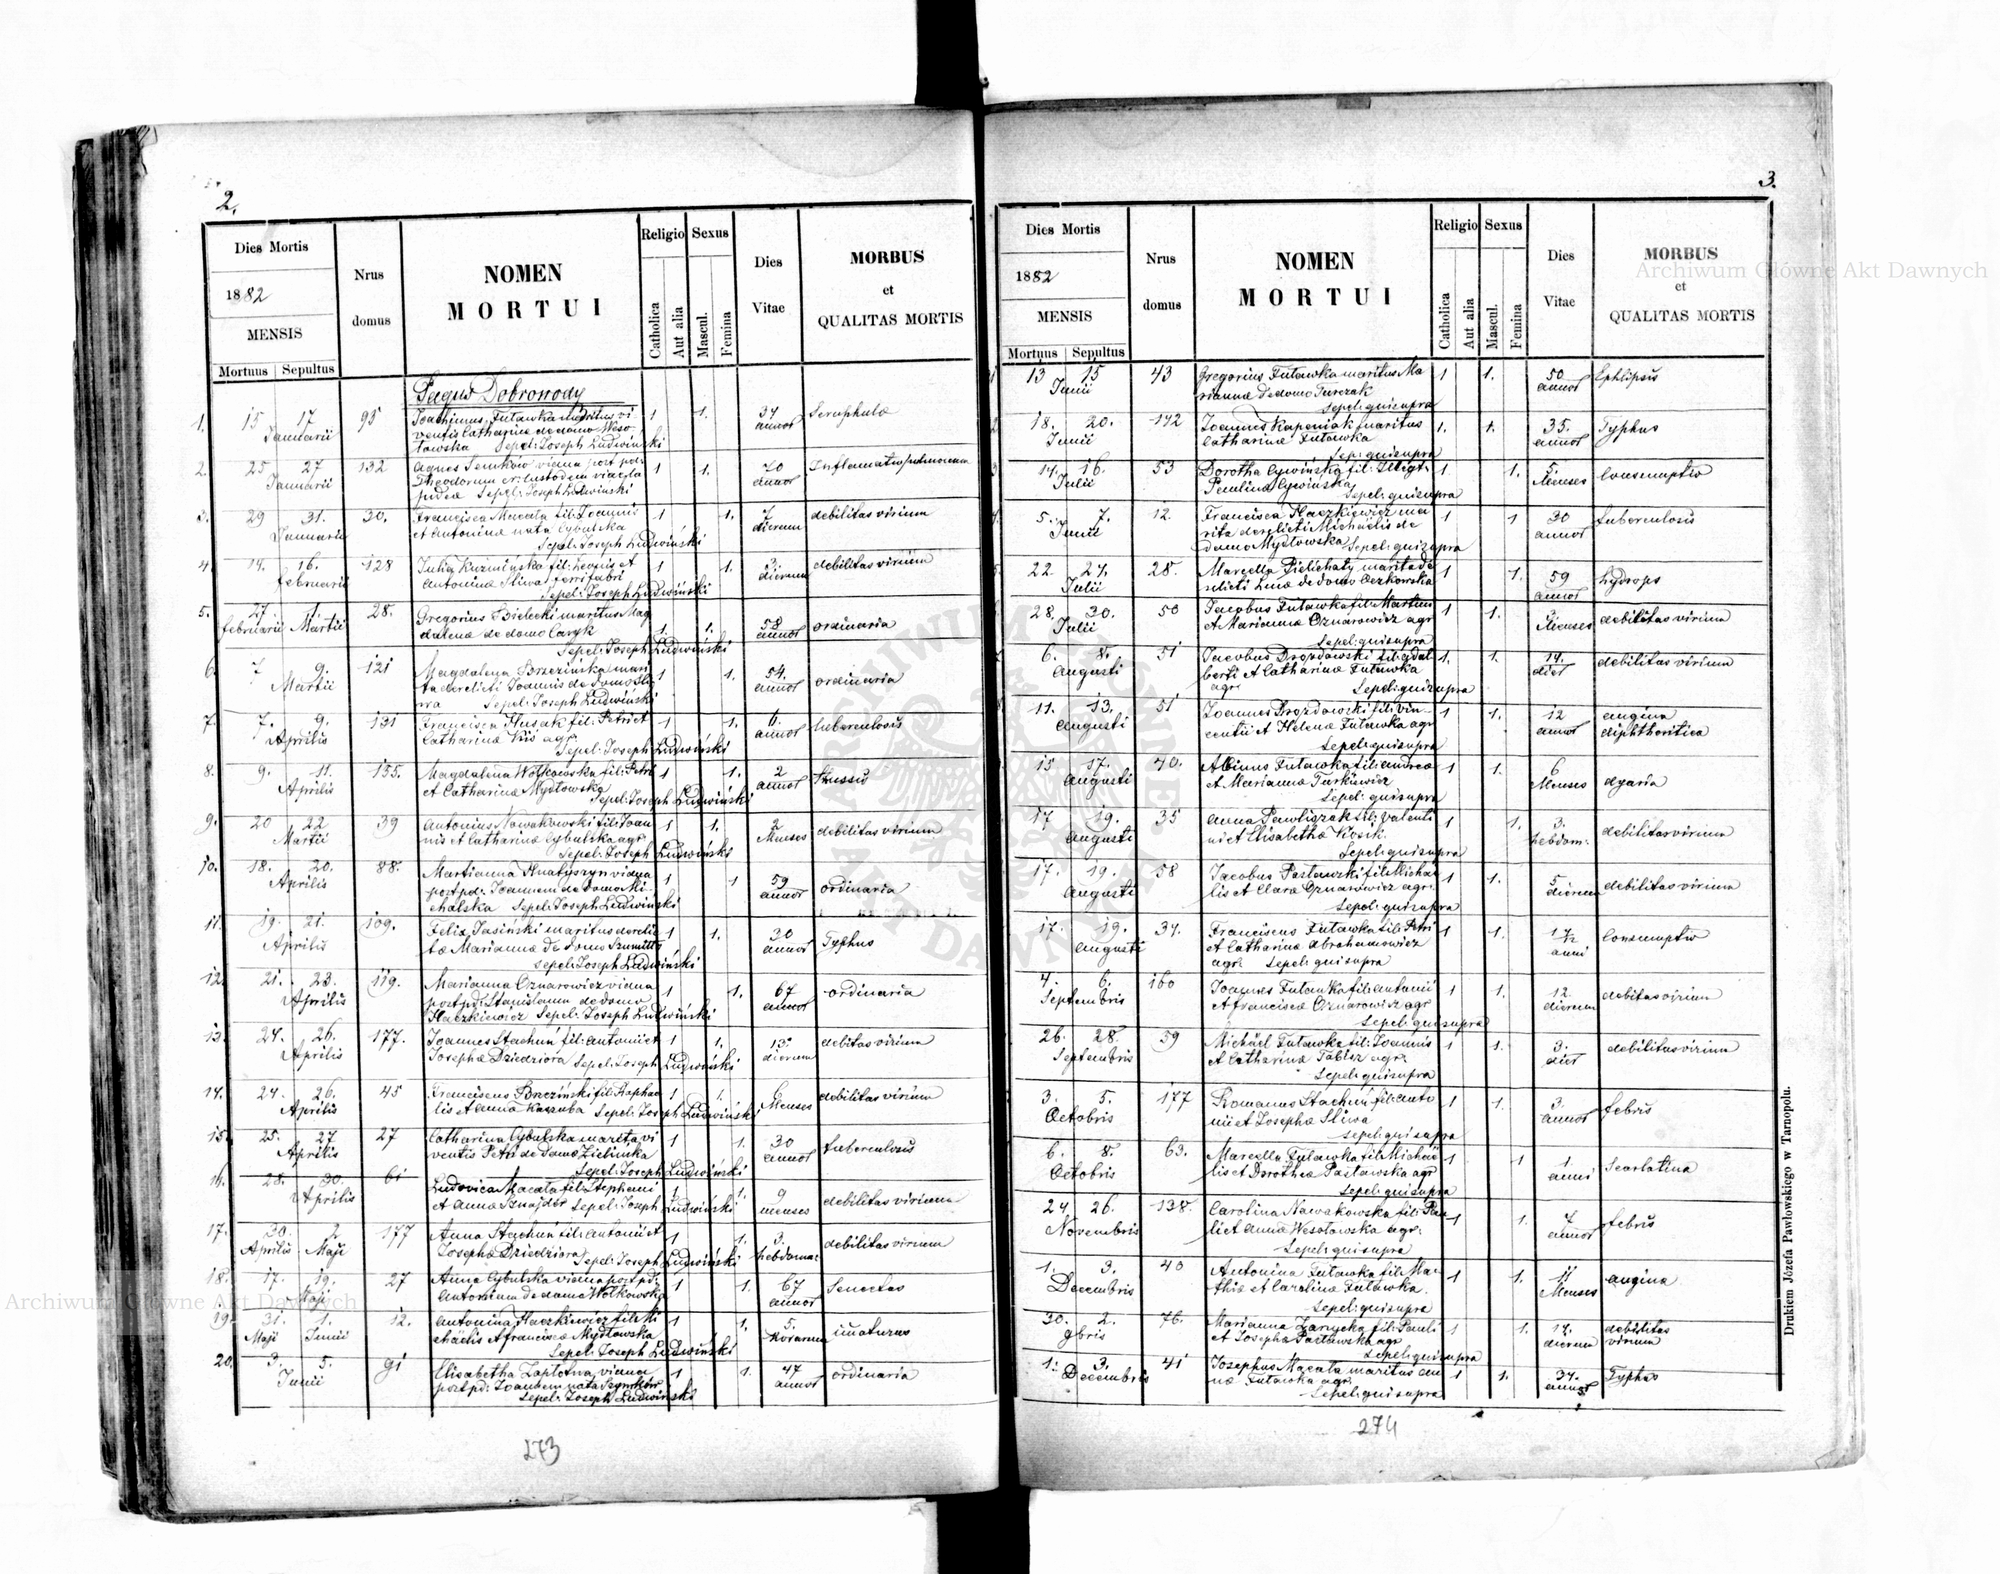 2.
Dies Mortis
1882
MENSIS
Mortuus Sepultus
Nrus
domus
NOMEN
MORTUI
Religio
Catholica
Aut alia
Sexus
Mascul.
Femina
Dies
Vitae
MORBUS
et
QUALITAS MORTIS
Pagus Dobrowody
1. 15 17 95 Joachimus Futawka maritus vi 1 1. 34 Scruphulæ
Januarii ventis Catharinæ de domo Weso annor
łowska Sepel: Joseph Ludwiński
2. 25 27 132 Agnes Senkow vidua post pd: 1 1. 70 Inflamatio pulmonum
Januarii Theodorum annor
Sepel: Joseph Ludwiński
3. 29 31. 30. Francisca Macała fil: Joannis 1 1. 7 debilitas virium
Januarii et Antoninæ nata Cybulska dierum
Sepel: Joseph Ludwiński
4. 14. 16. 128 Julia Kuzmińska fil: Leonis et 1 1. 3. debilitas virium
februarii Antoninæ Sliwa, ferrifabri dierum
Sepel: Joseph Ludwiński
5. 27. 28. Gregorius Bielecki maritus Mag
februarii Martii dalenæ de domo Caryk 1. 1. 58 annor ordinaria
Sepel: Joseph Ludwiński
6. 7 9. 121 Magdalena Brzezińska mari 1 1. 54. ordinaria
Martii ta derelicti Joannis de domo annor
Sepel: Joseph Ludwiński
7. 7. 9. 131 Francisca Husak fil: Petri et 1 1. 6. tuberculosis
Aprilis Catharinæ Kiś agr. annor
Sepel: Joseph Ludwiński
8. 9. 11. 155. Magdalena Wołkowska fil: Petri 1 1. 2 tussis
Aprilis et Catharinæ Mydłowska annor
Sepel: Joseph Ludwiński
9. 20 22 39 Antonius Nowakowski fil: Joan 1 1. 2 debilitas virium
Martii nis et Catharinæ Cybulska agr. Menses
Sepel: Joseph Ludwiński
10. 18. 20. 88. Marianna Hnatyszyn vidua 1 1 59 ordinaria
Aprilis post pd: Joannem de domo Mi annor
chalska Sepel: Joseph Ludwiński
11. 19. 21. 109. Felix Jasiński maritus derelic 1 1. 30 Typhus
Aprilis tæ Mariannæ de domo annor
Sepel: Joseph Ludwiński
12. 21. 23. 119. Marianna Oznarowicz vidua 1 1. 67 ordinaria
Aprilis post pd: Stanislaum de domo annor
Haczkiewicz Sepel: Joseph Ludwiński
13. 24. 26. 177. Joannes Stachuń fil: Antoni et 1 1. 13. debitas virium
Aprilis Josephæ Dziedziora Sepel: Joseph Ludwiński dierum
14. 24. 26. 45 Franciscus Brzeziński fil: Raphae 1 1. 6 debilitas virium
Aprilis lis et Annæ Kaszuba Sepel: Joseph Ludwiński Menses
15. 25. 27 27 Catharina Cybulska marita vi 1 1. 30 tuberculosis
Aprilis ventis Petri de domo Zielińska annor
Sepel: Joseph Ludwiński
16. 28. 30. 61 Ludovica Macała fil: Stephani 1. 1. 9 debilitas virium
Aprilis et Annæ Sznajder Sepel: Joseph Ludwiński menses
17. 30. 2. 177 Anna Stachuń fil: Antonii et 1 1. 3. debilitas virium
Aprilis Maji Josephæ Dziedziora Sepel: Joseph Ludwiński hebdoma:
18. 17. 19. 27 Anna Cybulska vidua post pd: 1 1. 67 Senectus
Maji Antonium de domo Wołkowska annor
19. 31. 1. 12. Antonina Haczkiewicz fil: Mi 1 1. 5. imaturus
Maji Junii chaelis et Franciscæ Mydłowska horarum
Sepel: Joseph Ludwiński
20. 3. 5. 91 Elisabetha Zapłotna, vidua 1 1. 47 ordinaria
Junii post pd: Joannem nata annor
Sepel: Joseph Ludwiński
273
3.
Dies Mortis
1882
MENSIS
Mortuus Sepultus
Nrus
domus
NOMEN
MORTUI
Religio
Catholica
Aut alia
Sexus
Mascul.
Femina
Dies
Vitae
MORBUS
et
QUALITAS MORTIS
13 15 43 Gregorius Futawka maritus Ma 1 1. 50 Ephlipsis
Junii riannæ de domo Turczak annor
Sepel: qui supra
18. 20. 142 Joannes Kapeniak maritus 1. 1. 35. Typhus
Junii Catharinæ Futawka annor
Sepel: qui supra
14. 16. 53 Dorotha Cywińska fil: Illegt: 1 1. 5 Consumptio
Julii Paulinæ Cywińska Menses
Sepel: qui supra
5. 7. 12. Francisca Haczkiewicz ma 1 1 30 tuberculosis
Junii rita derelicti Michaelis de annor
domo Mydłowska Sepel: qui supra
22. 24. 28. Marcella Pielichaty marita de 1 1. 59 hydrops
Julii relicti Lucæ de domo annor
28. 30. 50 Jacobus Futawka fil: Martini 1 1. 3 debilitas virium
Julii et Mariannæ Oznarowicz agr Menses
Sepel: qui supra
6. 8. 51 Jacobus Drozdowski fil: Adal 1. 1. 14. debilitas virium
Augusti berti et Catharinæ Futawka dier
agr. Sepel: qui supra
11. 13. 51 Joannes Drozdowski fil: Vin 1 1. 12 angina
Augusti centii et Helenæ Futawka agr annor diphthoritica
Sepel: qui supra
15 17. 40. Albinus Futawka fil: Andreæ 1 1. 6 dyaria
Augusti et Mariannæ Turkiewicz Menses
Sepel: qui supra
17 19. 35 Anna Pawliszak fil: Valenti 1 1. 3. debilitas virium
Augusti ni et Elisabethæ Kosik hebdom:
Sepel: qui supra
17. 19. 58 Jacobus Pastawski fil: Micha 1 1. 5 debilitas virium
Augusti lis et Claræ Oznarowicz agr. dierum
Sepel: qui supra
17. 19. 34. Franciscus Futawka fil: Petri 1 1. 1½ Consumptio
Augusti et Catharinæ Abrahamowicz anni
agr. Sepel: qui supra
4. 6. 160 Joannes Futawka fil: Antonii 1 1. 12. debitas virium
Septembris et Franciscæ Oznarowicz agr dierum
Sepel: qui supra
26. 28. 59 Michael Futawka fil: Joannis 1 1. 3. debilitas virium
Septembris et Catharinæ Tabisz agr. dier
Sepel: qui supra
3. 5. 177 Romanus Stachuń fil: Anto 1 1. 3. febris
Octobris ni et Josephæ Sliwa annor
Sepel: qui supra
6. 8. 63. Marcella Futawka fil: Michae 1 1 1. Scarlatina
Octobris lis et Dorotheæ Pastawska agr anni
Sepel: qui supra
24 26. 138. Carolina Nowakowska fil: Pau 1 1. 7 febris
Novembris li et Annæ Wesołowska agr. annor
Sepel: qui supra
1. 3. 40 Antonina Futawka fil: Ma 1 1. 11 angina
Decembris thiæ et Carolinæ Futawka. Menses
Sepel: qui supra
30. 2. 76. Marianna Zarycka fil: Pauli 1 1. 14. debilitas
9bris et Josephæ Pastawska agr dierum virium
Sepel: qui supra
1. 3. 41 Josephus Macała maritus An 1 1. 34. Typhus
Decembris næ Futawka agr. annor
Sepel: qui supra
274
Drukiem Józefa Pawłowskiego w Tarnopolu.
Archiwum Główne Akt Dawnych
Archiwum Główne Akt Dawnych
ARCHIWUM GŁÓWNE AKT DAWNYCH